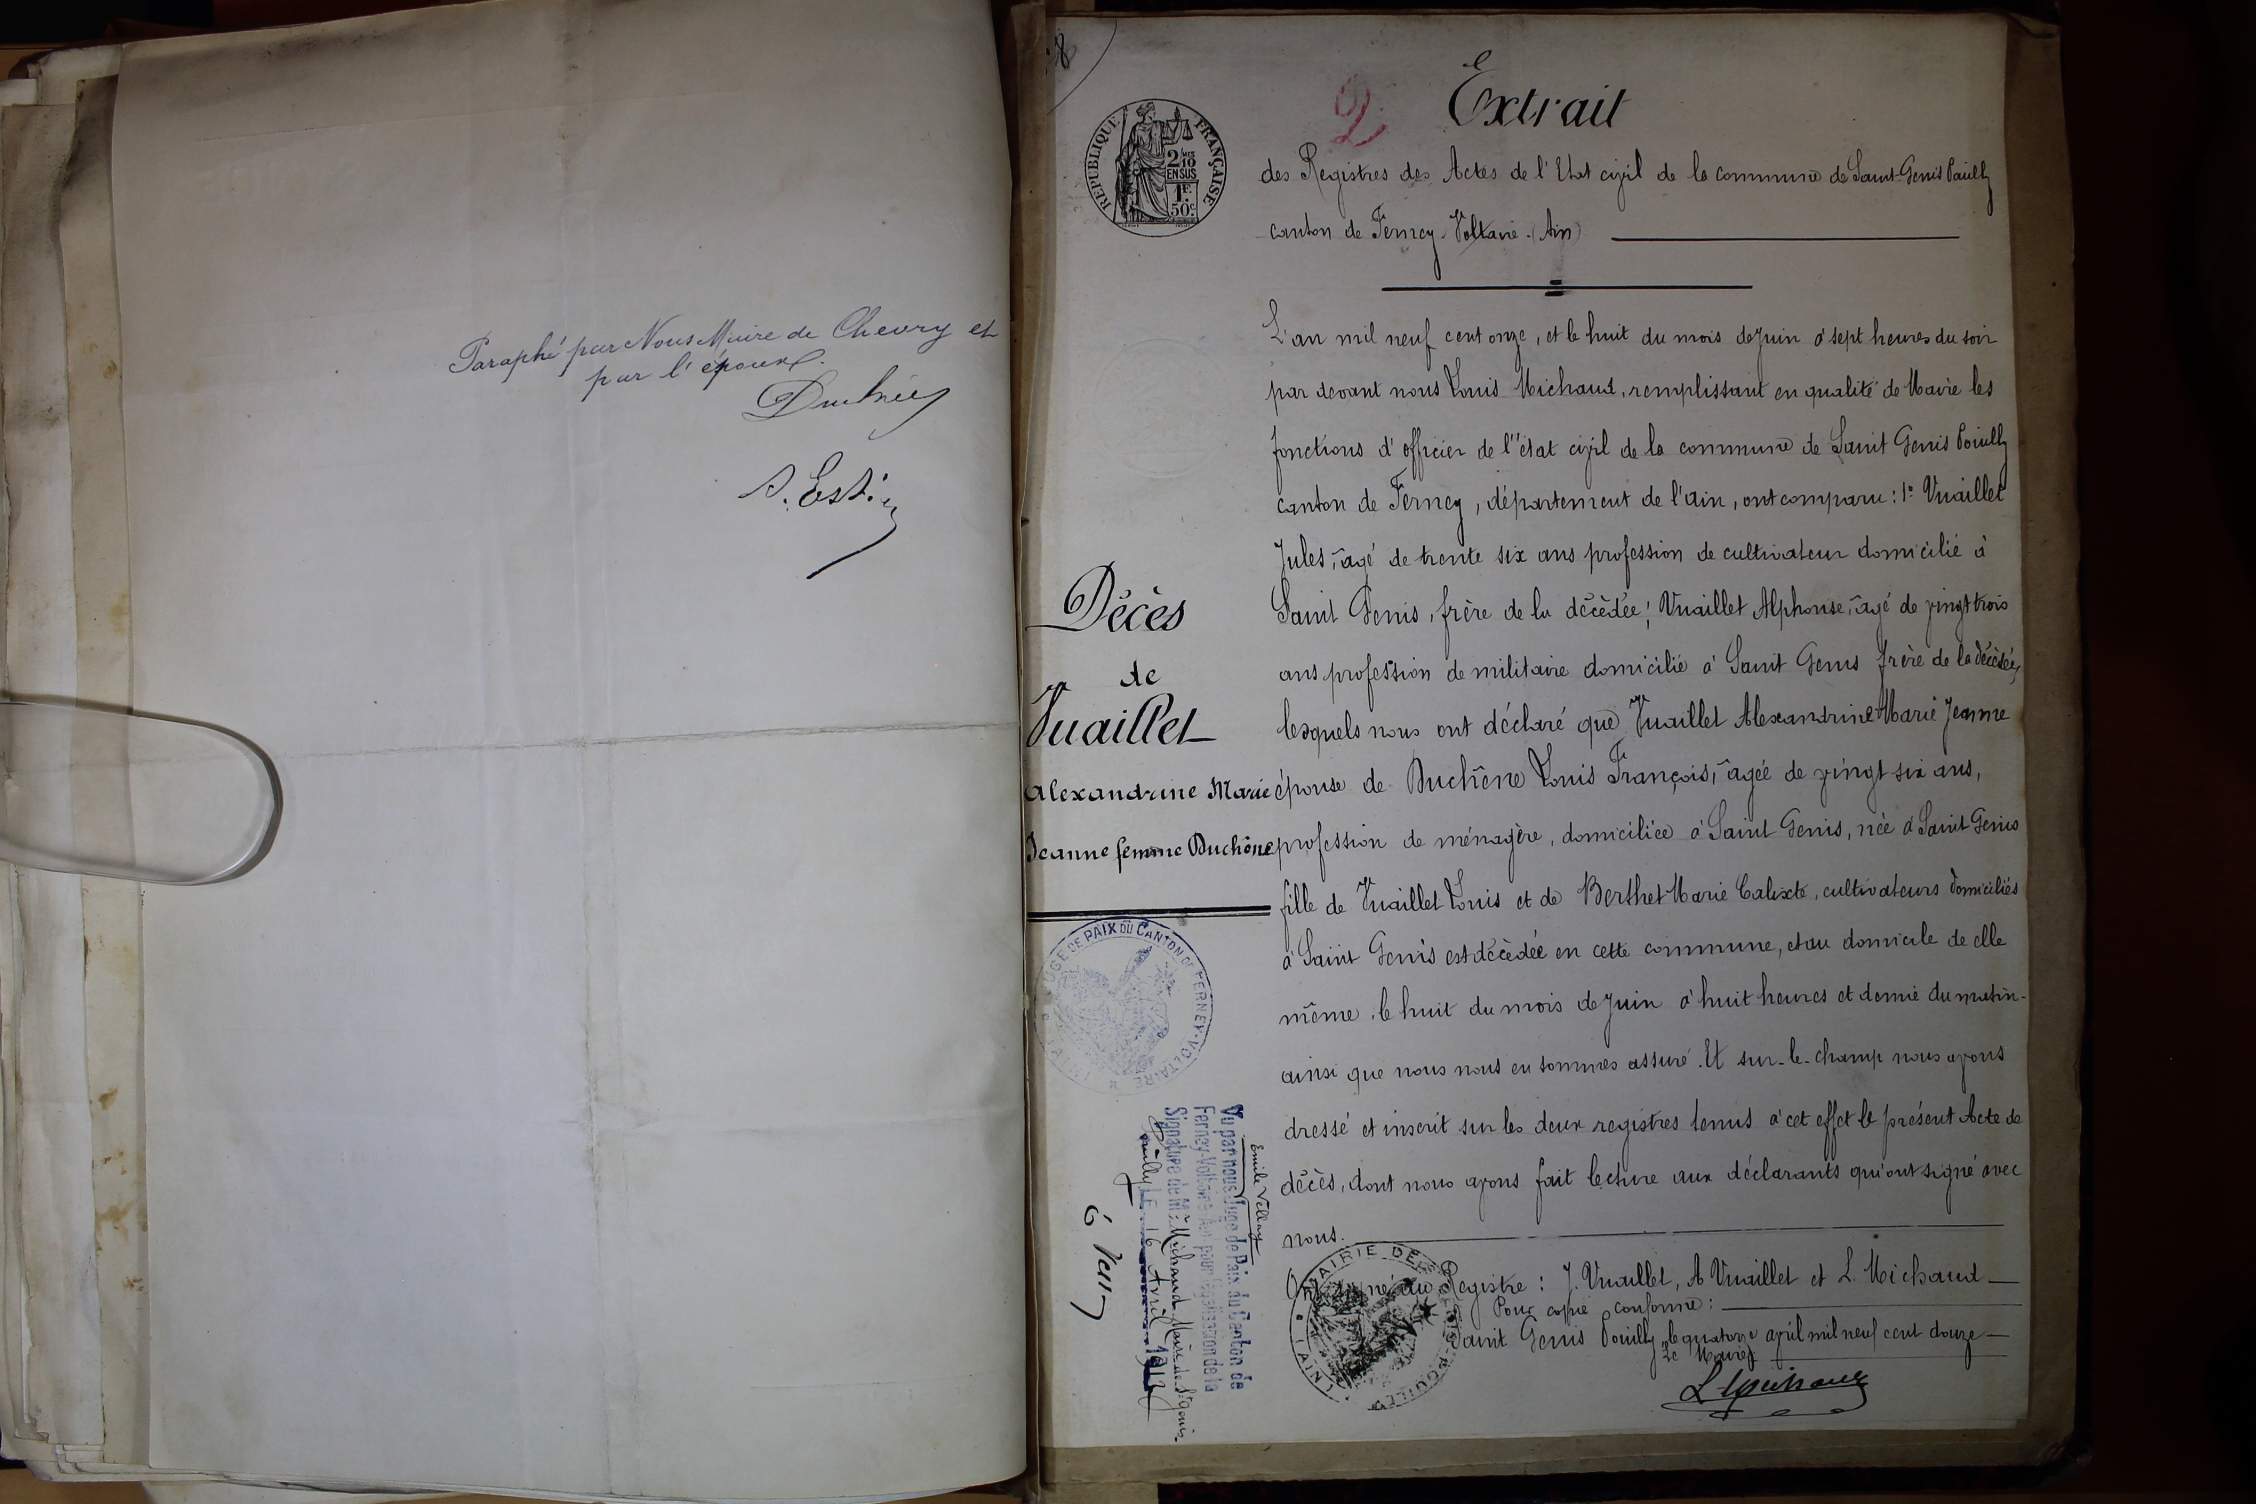 Paraphé par Nous Maire de Chevry et
par l'époux.
Extrait
2
RÉPUBLIQUE FRANÇAISE
2/10
EN SUS
1F.
50c.
des Registres des Actes de l'Etat civil de la commune de Saint-Genis Pouilly
canton de Ferney-Voltaire-(Ain)
L'an mil neuf cent onze, et le huit du mois de Juin à sept heures du soir
par devant nous Louis Michaud, remplissant en qualité de Maire les
fonctions d'officier de l'état civil de la commune de Saint Genis Pouilly
canton de Ferney, département de l'Ain, ont comparu: 1° Vuaillet
Jules, âgé de trente six ans profession de cultivateur domicilié à
Saint Genis, frère de la décédée; Vuaillet Alphonse, âgé de vingt trois
ans profession de militaire domicilié à Saint Genis frère de la décédée,
lesquels nous ont déclaré que Vuaillet Alexandrine Marie Jeanne
épouse de Duchêne Louis François, âgée de vingt six ans,
profession de ménagère, domiciliée à Saint Genis, née à Saint Genis
fille de Vuaillet Louis et de Berthet Marie Calixte, cultivateurs domiciliés
à Saint Genis est décédée en cette commune, et au domicile de elle
même, le huit du mois de Juin à huit heures et demie du matin-
ainsi que nous nous en sommes assuré. Et sur-le-champ nous avons
dressé et inscrit sur les deux registres tenus à cet effet le présent Acte de
décès, dont nous avons fait lecture aux déclarants qui ont signé avec
nous.
Ont signé au Registre: J. Vuaillet, A Vuaillet et L. Michaud
Pour copie conforme:
Saint Genis Pouilly, le quatorze avril mil neuf cent douze
Le Maire,
L. Michaud
MAIRIE DE ST GENIS-POUILLY (AIN)
Décès
de
Vuaillet
Alexandrine Marie
Jeanne femme Duchêne
JUGE DE PAIX DU CANTON DE FERNEY-VOLTAIRE (AIN)
Vu par nous Juge de Paix du Canton de
Ferney-Voltaire Ain pour légalisation de la
Signature de M. Michaud Maire de St Genis
Pouilly LE 16 Avril 1912